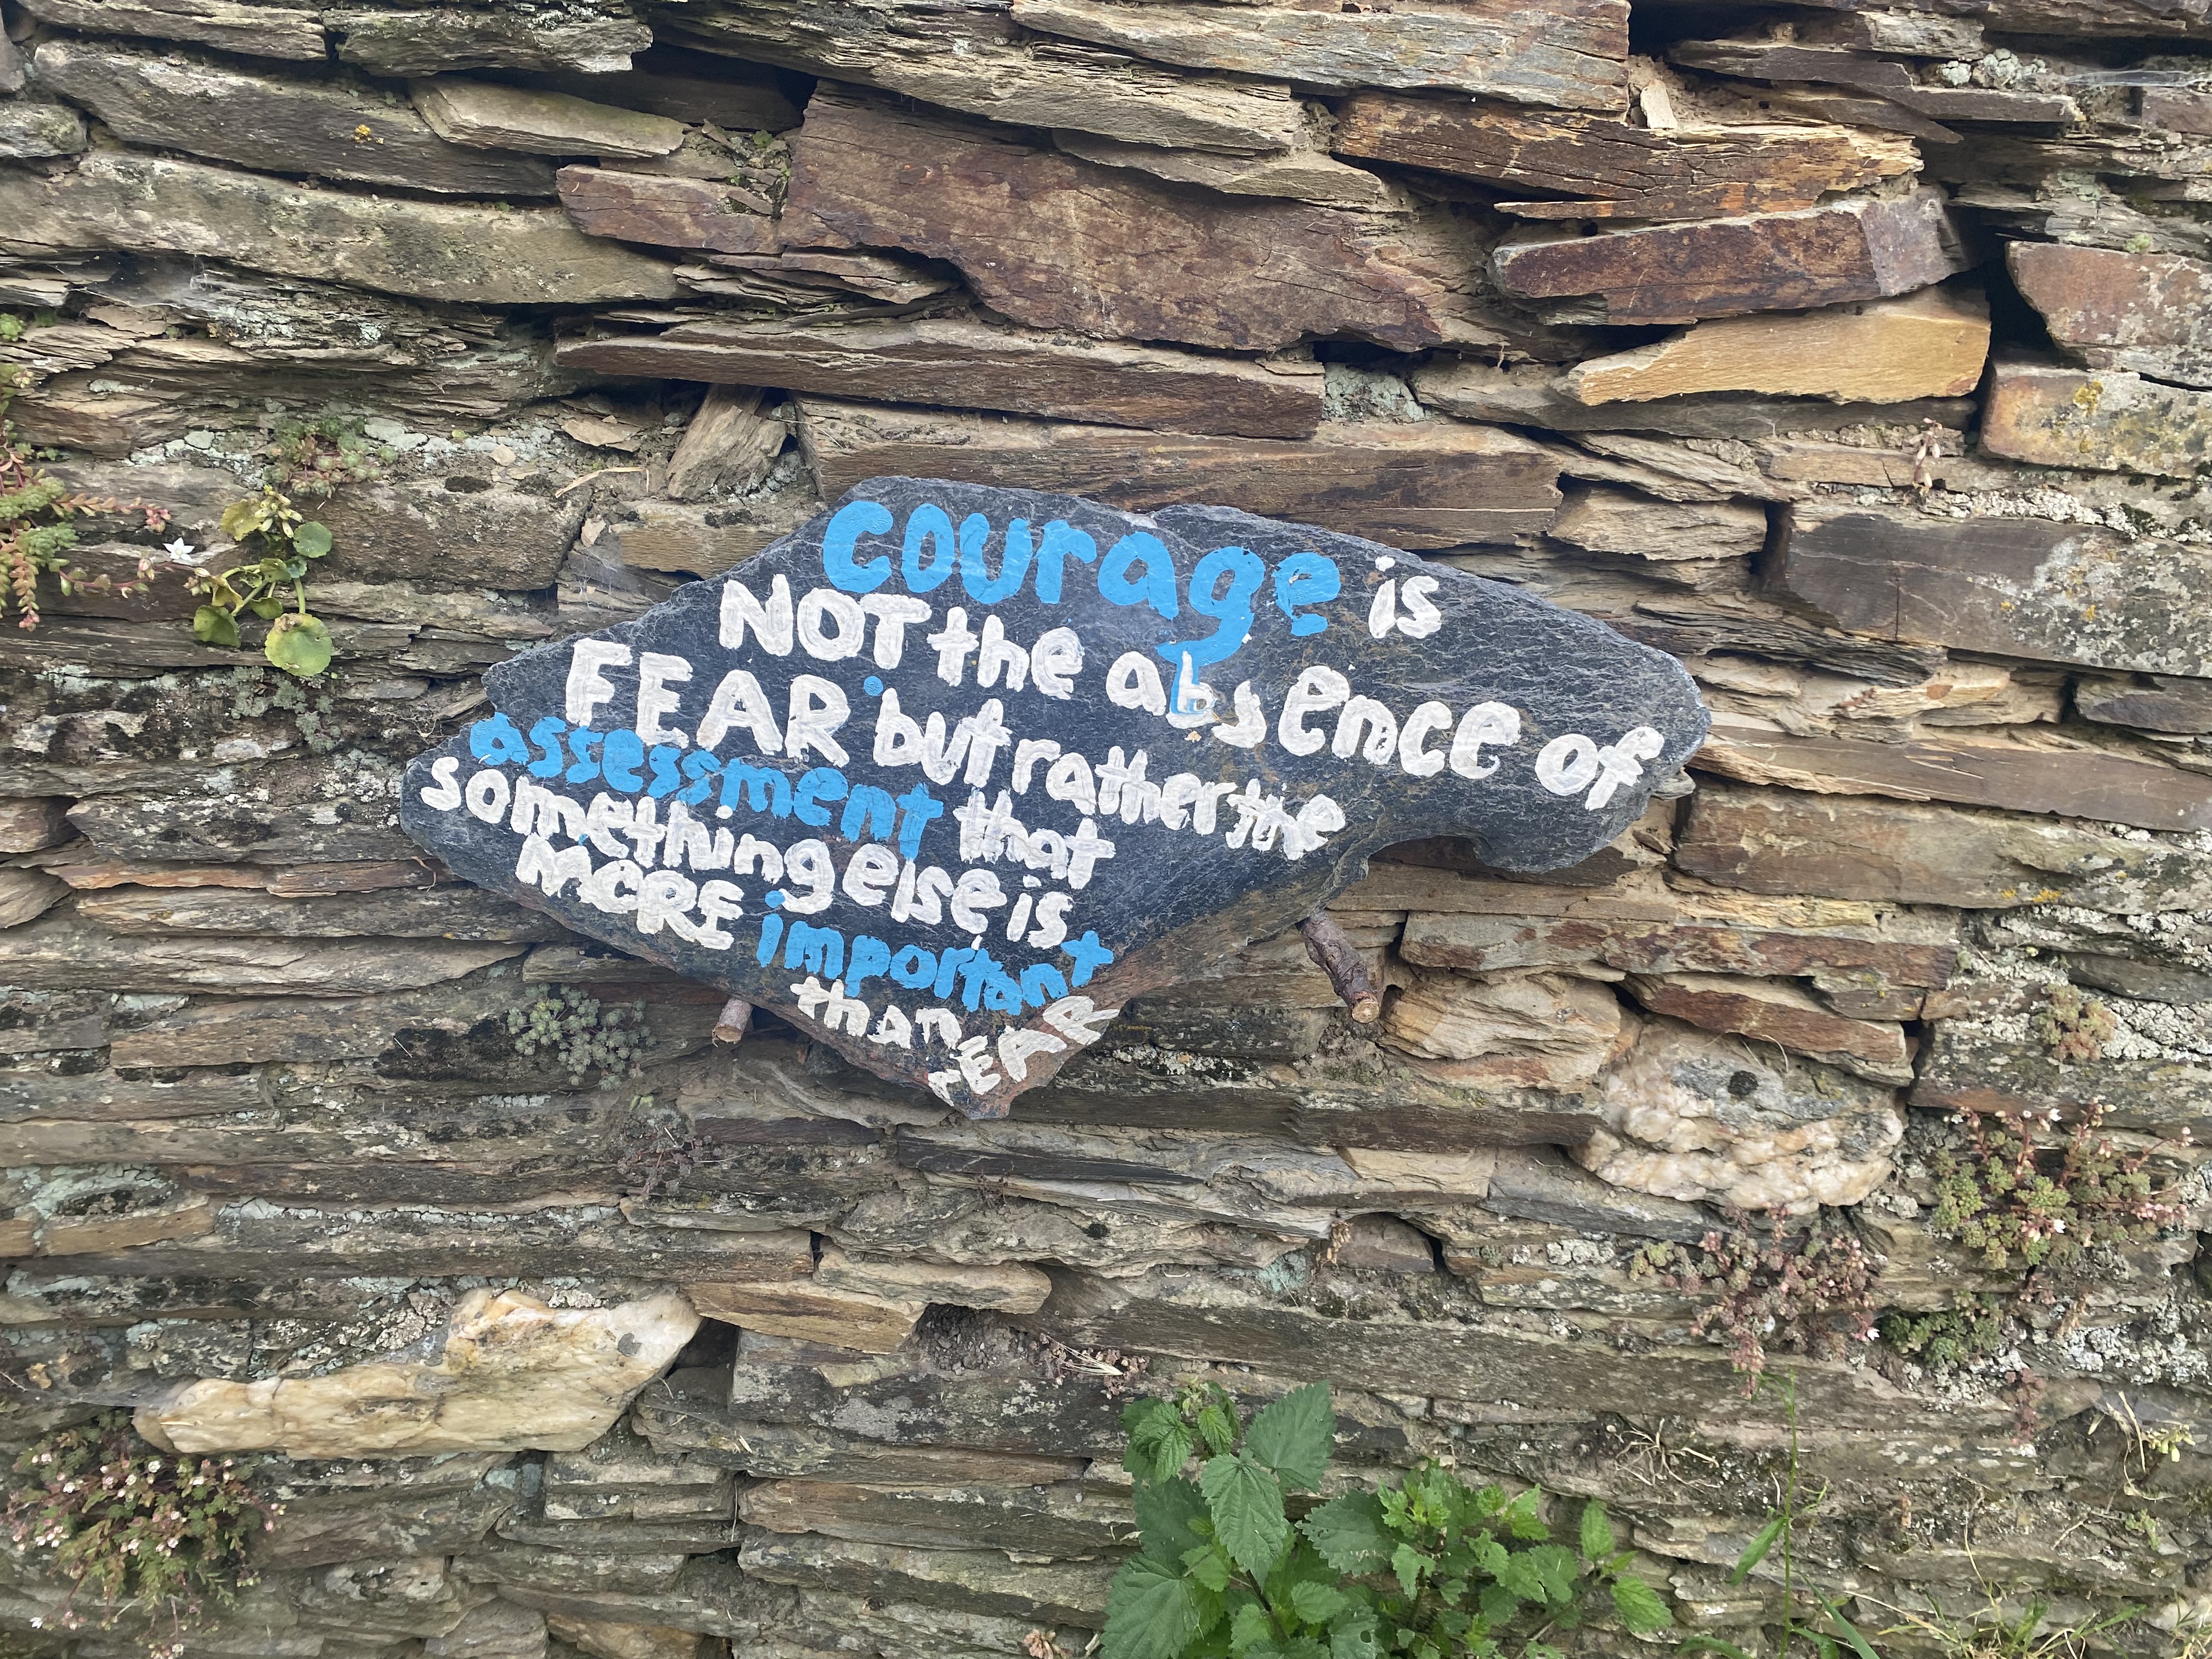 courage is
NOT the absence of
FEAR but rather the
assessment that
something else is
MORE important
than
FEAR